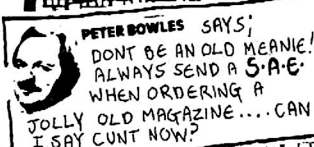 PETER BOWLES SAYS;
DONT BE AN OLD MEANIE!
ALWAYS SEND A S·A·E·
WHEN ORDERING A
JOLLY OLD MAGAZINE.... CAN
I SAY CUNT NOW?